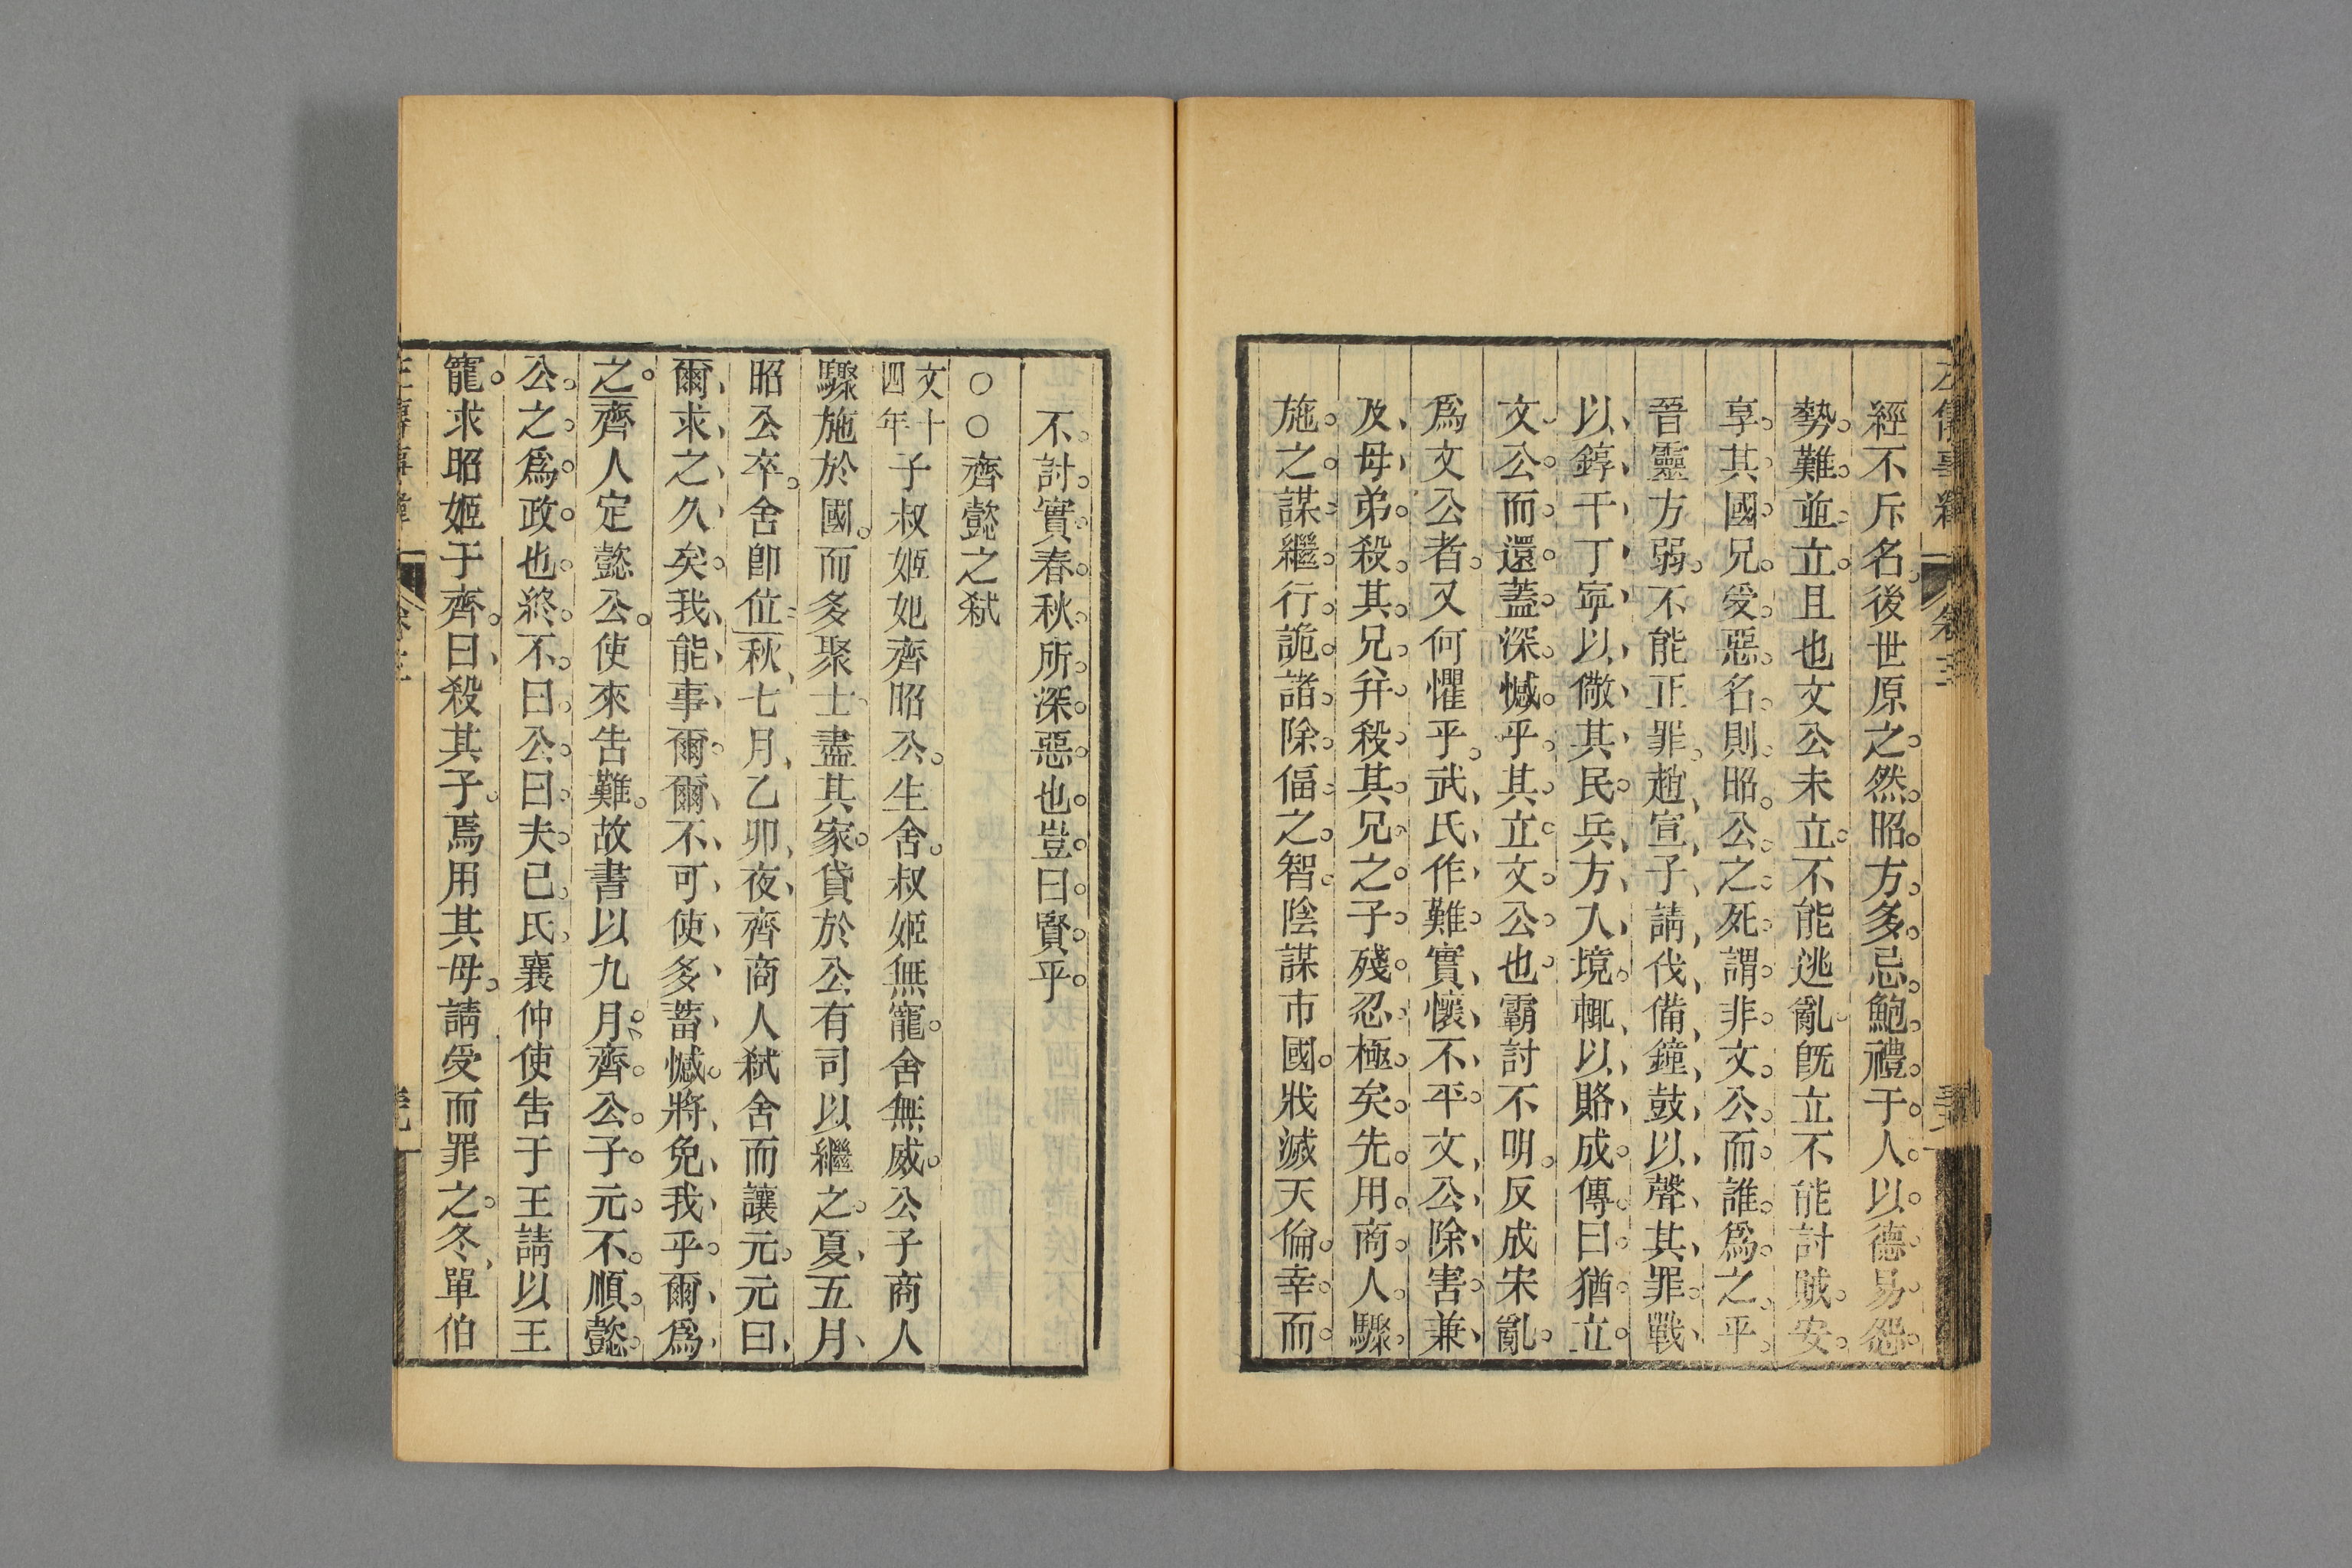 經不斥名後世原之然昭方多忌鮑禮于人以德易怨
勢難並立且也文公未立不能逃亂旣立不能討賊安
享其國兄受惡名則昭公之死謂非文公而誰爲之乎
晉靈方弱不能正罪趙宣子請伐備鐘鼓以聲其罪戰
以錞于丁寧以儆其民兵方入境輒以賂成傳曰猶立
文公而還蓋深憾乎其立文公也霸討不明反成宋亂
爲文公者又何懼乎武氏作難實懷不平文公除害兼
及母弟殺其兄幷殺其兄之子殘忍極矣先用商人驟
施之謀繼行詭諸除偪之智陰謀市國戕滅天倫幸而
不討實春秋所深惡也豈曰賢乎
○○齊懿之弑
文十四年子叔姬妃齊昭公生舍叔姬無寵舍無威公子商人
驟施於國而多聚士盡其家貸於公有司以繼之夏五月
昭公卒舍卽位秋七月乙卯夜齊商人弑舍而讓元元曰
爾求之久矣我能事爾爾不可使多蓄憾將免我乎爾爲
之齊人定懿公使來告難故書以九月齊公子元不順懿
公之爲政也終不曰公曰夫己氏襄仲使告于王請以王
寵求昭姬于齊曰殺其子焉用其母請受而罪之冬單伯